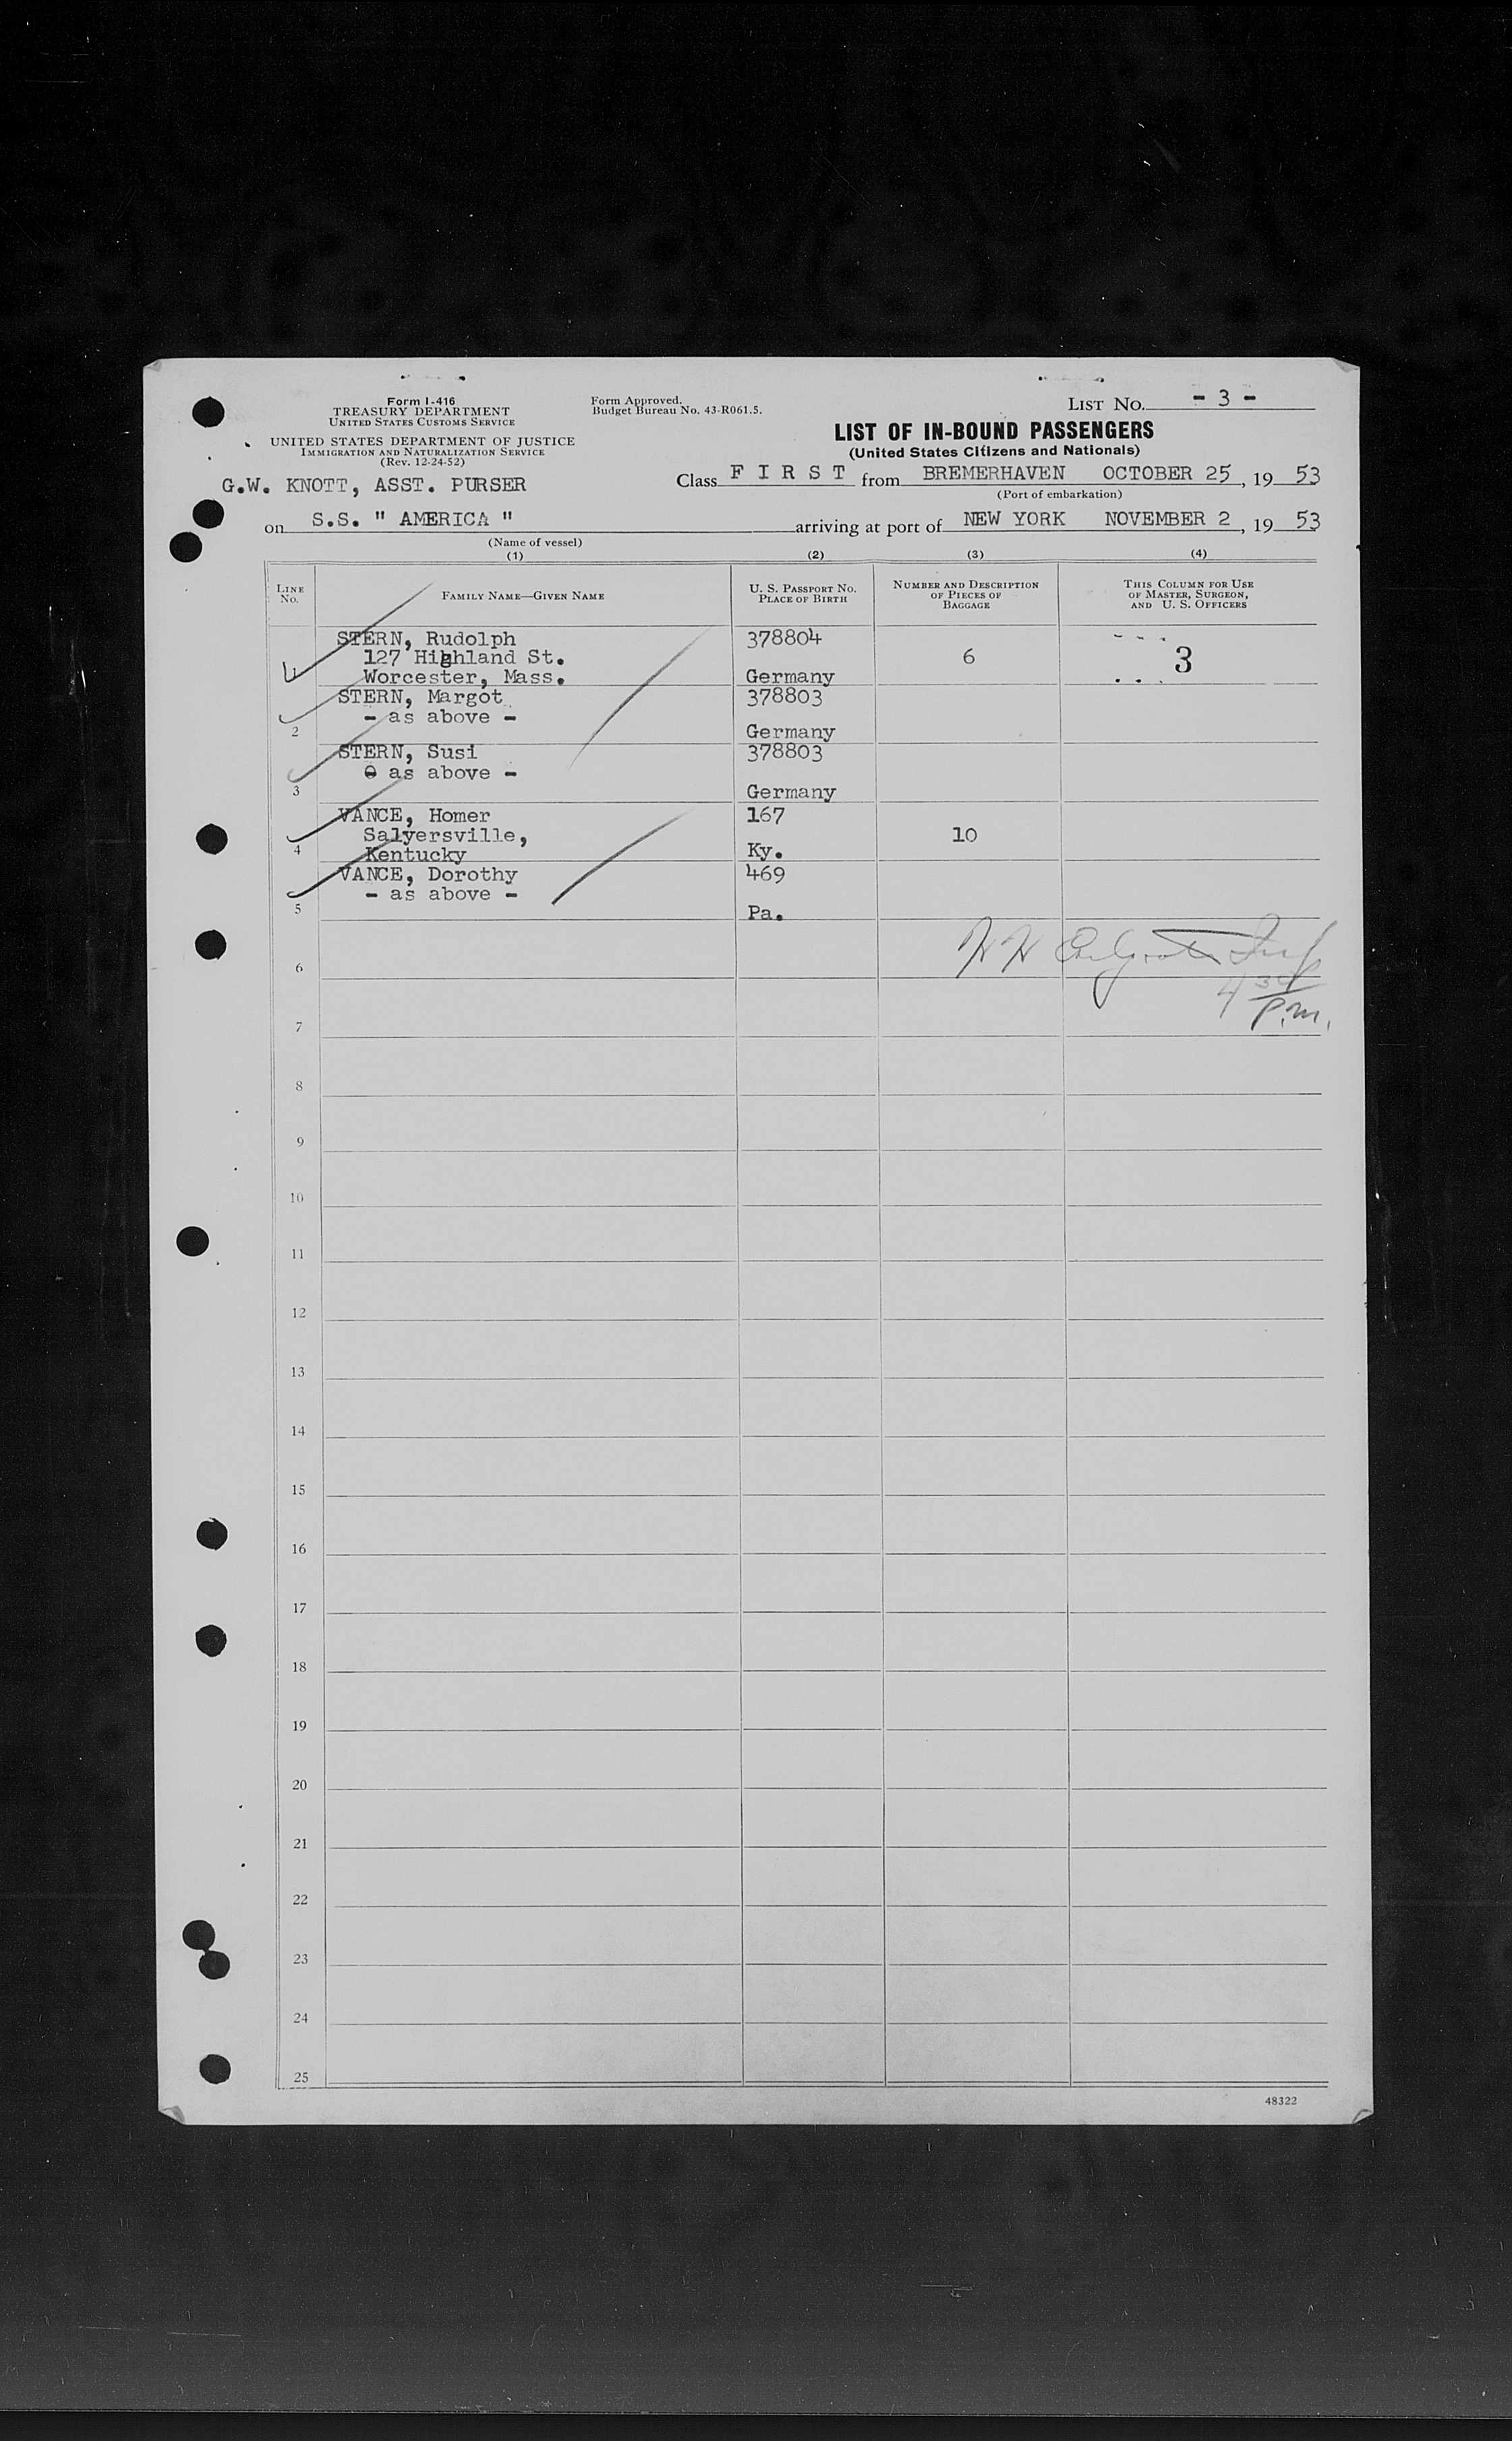 Form I-416
TREASURY DEPARTMENT
UNITED STATES CUSTOMS SERVICE
UNITED STATES DEPARTMENT OF JUSTICE
IMMIGRATION AND NATURALIZATION SERVICE
(Rev. 12-24-52)
G.W. KNOTT, ASST. PURSER
Form Approved.
Budget Bureau No. 43-R061.5.
LIST NO. - 3 -
LIST OF IN-BOUND PASSENGERS
(United States Citizens and Nationals)
Class F I R S T from BREMERHAVEN OCTOBER 25, 19 53
(Port of embarkation)
on S.S. " AMERICA " arriving at port of NEW YORK NOVEMBER 2, 19 53
(Name of vessel)
(1) (2) (3) (4)
LINE NO.
FAMILY NAME—GIVEN NAME
U. S. PASSPORT NO.
PLACE OF BIRTH
NUMBER AND DESCRIPTION
OF PIECES OF
BAGGAGE
THIS COLUMN FOR USE
OF MASTER, SURGEON,
AND U. S. OFFICERS
STERN, Rudolph 378804
1 127 Highland St. 6 3
Worcester, Mass. Germany
STERN, Margot 378803
- as above -
2 Germany
STERN, Susi 378803
as above -
3 Germany
VANCE, Homer 167
Salyersville, 10
4 Kentucky Ky.
VANCE, Dorothy 469
- as above -
5 Pa.
6
4 30
P.m.
7
8
9
10
11
12
13
14
15
16
17
18
19
20
21
22
23
24
25
48322